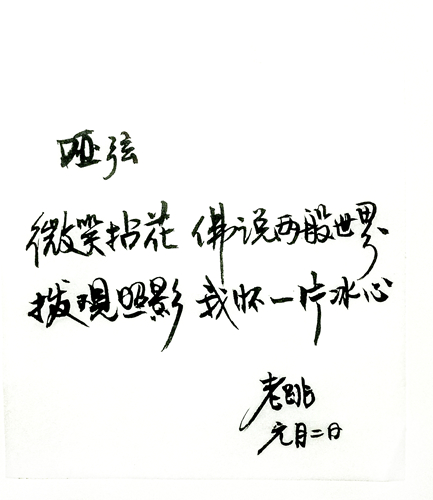 哑弦
微笑拈花 佛说两般世界
拨观照影 我怀一片冰心
老跳
元月二日